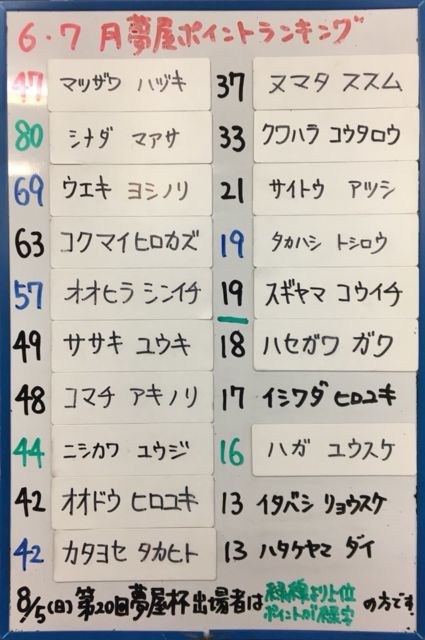 6・7 月夢屋ポイントランキング
47 マツザワ ハヅキ
80 シナダ マアサ
69 ウエキ ヨシノリ
63 コクマイヒロカズ
57 オオヒラ シンイチ
49 ササキ ユウキ
48 コマチ アキノリ
44 ニシカワ ユウジ
42 オオドウ ヒロユキ
42 カタヨセ タカヒト
37 ヌマタ ススム
33 クワハラ コウタロウ
21 サイトウ アツシ
19 タカハシ トシロウ
19 スギヤマ コウイチ
18 ハセガワ ガク
17 イシワダ ヒロユキ
16 ハガ ユウスケ
13 イタバシ リョウスケ
13 ハタケヤマ ダイ
8/5(日) 第20回夢屋杯出場者は 緑線より上位 の方です
ポイントが緑字